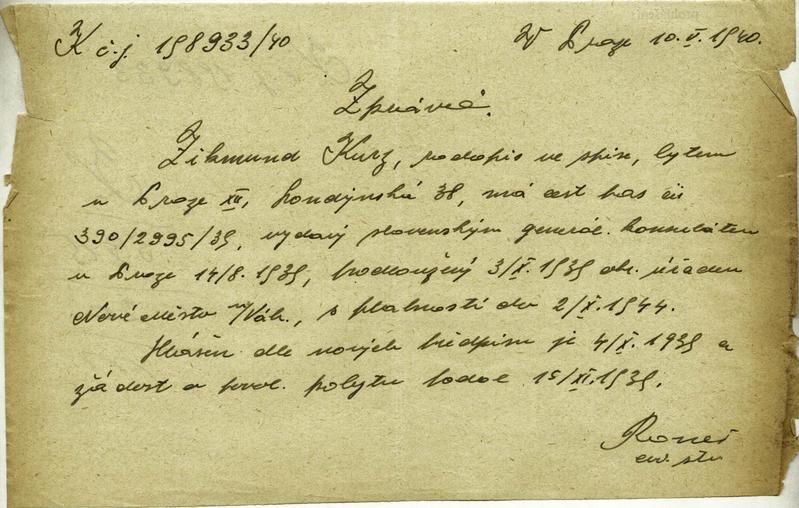 K č.j. 198933/40 V Praze 10.V.1940.
Zpráva.
Zikmund Kurz, rodopis ve spise, bytem
v Praze XII, Londýnská 38, má cest. pas čís
390/2995/39, vydaný slovenským generál. konsulátem
v Praze 14/8.1939, prodloužený 3/X.1939 okr. úřadem
Nové Město n/Váh., s platností do 2/X.1944.
Hlášen dle nových předpisů je 4/X.1939 a
žádost o povol. pobytu podal 15/XI.1939.